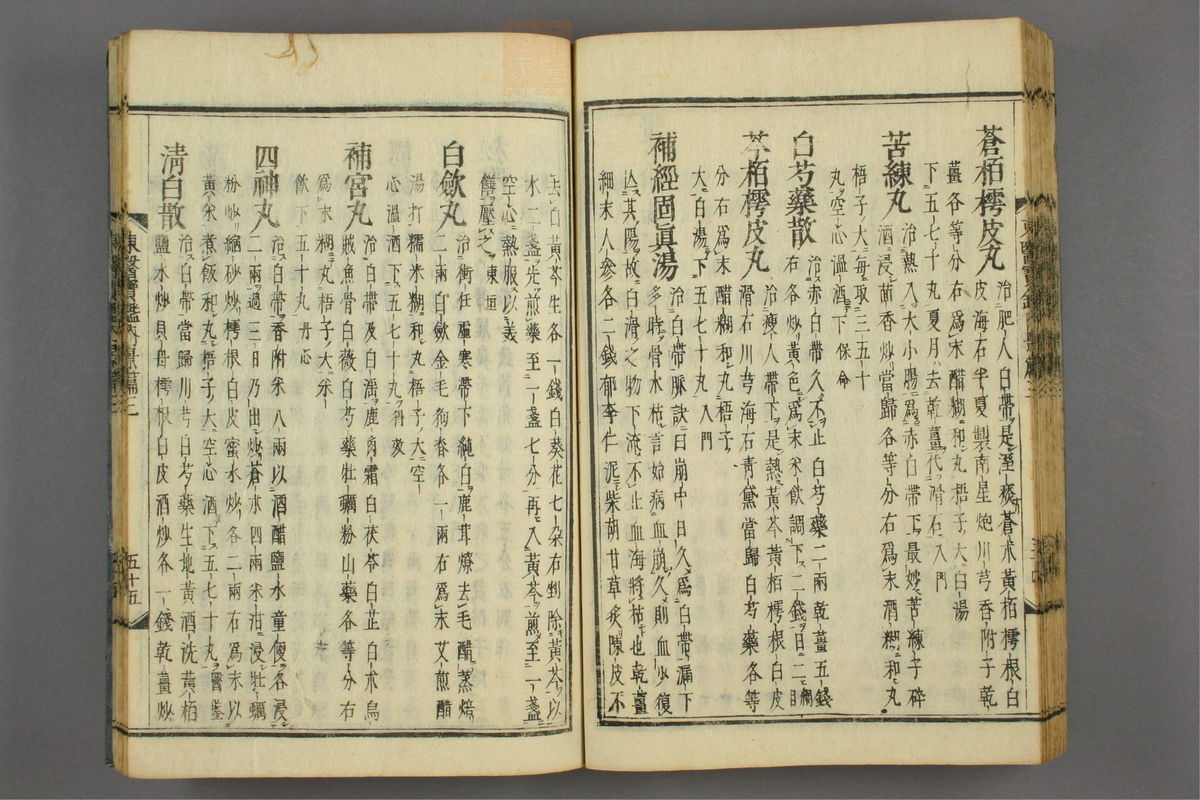 蒼栢樗皮丸 治肥人白帶是濕痰蒼朮黃栢樗根白
皮海石半夏製南星炮川芎香附子乾
薑各等分右爲末醋糊和丸梧子大白湯
下五七十丸夏月去乾薑代滑石入門
苦練丸 治熱入大小腸爲赤白帶下最妙苦練子碎
酒浸茴香炒當歸各等分右爲末酒糊和丸
梧子大每取三五十
丸空心溫酒下保命
白芍藥散 治赤白帶久不止白芍藥二兩乾薑五錢
右各炒黃色爲末米飮調下二錢日二綱目
芩栢樗皮丸 治瘦人帶下是熱黃芩黃栢樗根白皮
滑石川芎海石靑黛當歸白芍藥各等
分右爲末醋糊和丸梧子
大白湯下五七十丸入門
補經固眞湯 治白帶脈訣曰崩中日久爲白帶漏下
多時骨水枯言始病血崩久則血少復
亾其陽故白滑之物下流不止血海將枯也乾薑
細末人參各二錢郁李仁泥柴胡甘草炙陳皮不
去白黃芩生各一錢白葵花七朶右剉除黃芩以
水二盞先煎藥至一盞七分再入黃芩煎至一盞
空心熱服以美
饍壓之東垣
白歛丸 治衝任虛寒帶下純白鹿茸燎去毛醋蒸焙
二兩白歛金毛狗脊各一兩右爲末艾煎醋
湯打糯米糊和丸梧子大空
心溫酒下五七十丸
補宮丸 治白帶及白濁鹿角霜白茯苓白芷白朮烏
賊魚骨白薇白芍藥牡礪粉山藥各等分右
爲末糊丸梧子大米
飮下五十丸丹心
四神丸 治白帶香附米八兩以酒醋鹽水童便各浸
二兩過三日乃出炒蒼朮四兩米泔浸牡蠣
粉炒縮砂炒樗根白皮蜜水炒各二兩右爲末以
黃米煮飯和丸梧子大空心酒下五七十丸醫鑒
淸白散 治白帶當歸川芎白芍藥生地黃酒洗黃栢
鹽水炒貝母樗根白皮酒炒各一錢乾薑炒
東醫寶鑑內景篇三
五十五